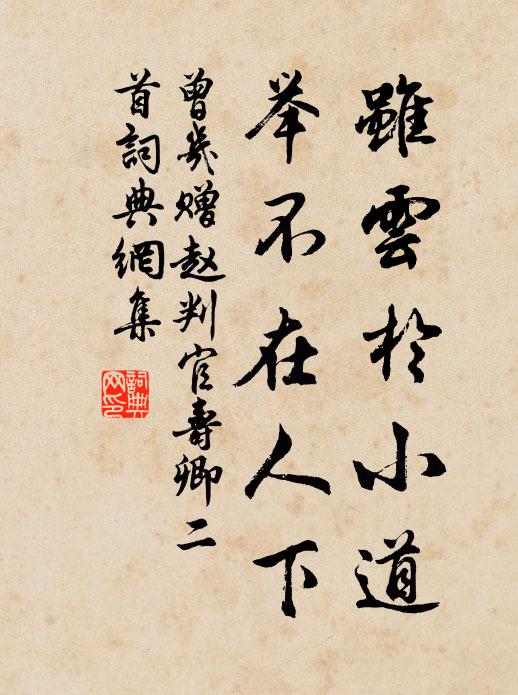 雖雲於小道
举不在人下
曾幾赠赵判官壽卿二
首詞典網集
詞典
网印